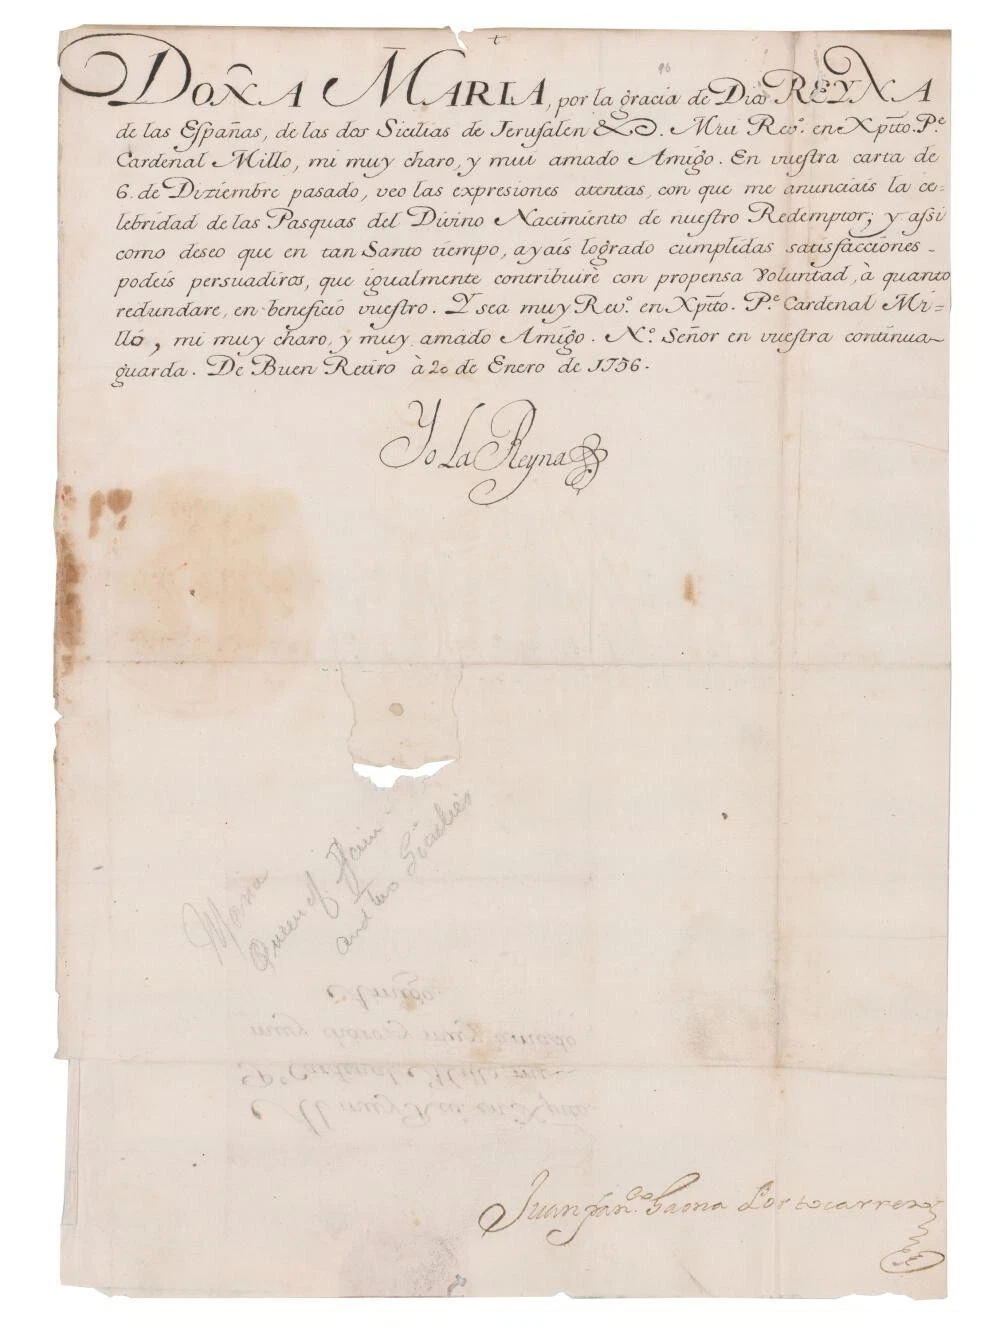 †
96
DOÑA MARIA, por la gracia de Dios REYNA
de las Españas, de las dos Sicilias de Jerusalen &c. Mui Revº. en Xpīto. Pe
Cardenal Millo, mi muy charo, y mui amado Amigo. En vuestra carta de
6. de Diziembre pasado, veo las expresiones atentas, con que me anunciais la ce-
lebridad de las Pasquas del Divino Nacimiento de nuestro Redemptor; y assi
como deseo que en tan Santo tiempo, ayais logrado cumplidas satisfacciones -
podeis persuadiros, que igualmente contribuirè con propensa Voluntad, à quanto
redundare, en beneficio vuestro. Y sea muy Revº. en Xpīto. Pe Cardenal Mi-
lló, mi muy charo, y muy amado Amigo. Nº. Señor en vuestra continua
guarda. De Buen Retiro à 20 de Enero de 1756.
Yo La Reyna
Maria
Queen of Spain
and two Sicilies
Amigo.
muy charo, y muy amado
Pe Cardenal Millo, mi
Al muy Revº. en Xpīto.
Juan Franco. Gaona Portocarrero